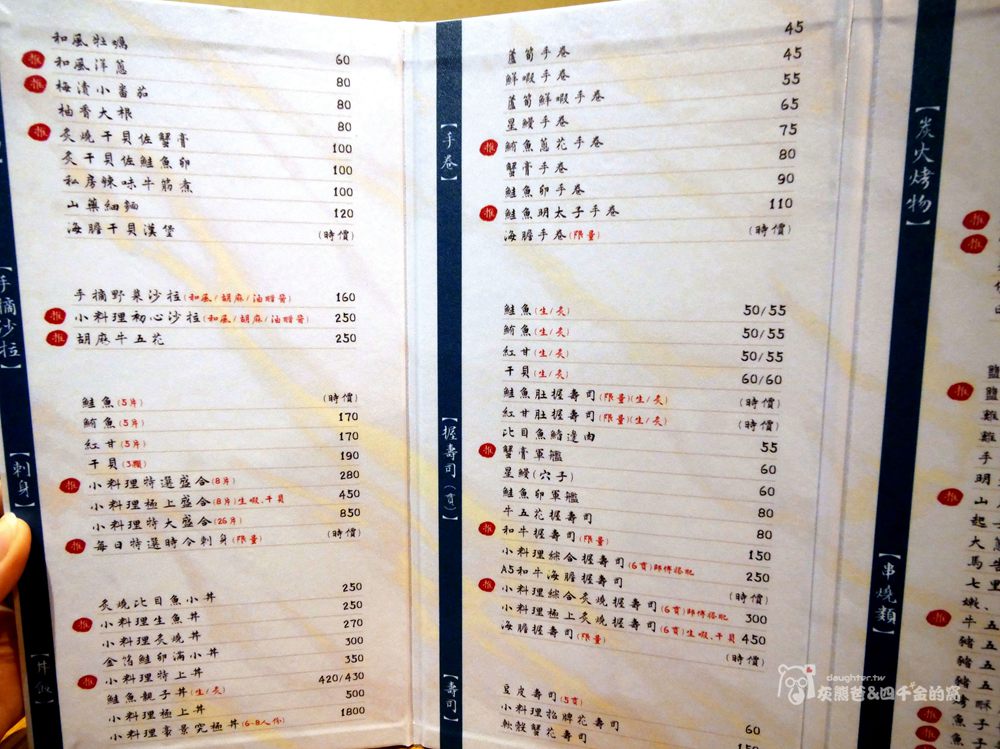 【手摘沙拉】
【刺身】
【丼飯】
和風牡蠣 60
推 和風洋蔥 80
推 梅漬小番茄 80
柚香大根 80
推 炙燒干貝佐蟹膏 100
炙干貝佐鮭魚卵 100
私房辣味牛筋煮 100
山藥細麵 120
海膽干貝漢堡 (時價)
手摘野菜沙拉(和風/胡麻/油醋醬) 160
推 小料理初心沙拉(和風/胡麻/油醋醬) 250
推 胡麻牛五花 250
鮭魚(5片) (時價)
鮪魚(5片) 170
紅甘(5片) 170
干貝(3顆) 190
推 小料理特選盛合(8片) 280
小料理極上盛合(8片)生蝦、干貝 450
小料理特大盛合(26片) 850
推 每日特選時令刺身(限量) (時價)
炙燒比目魚小丼 250
推 小料理生魚丼 250
小料理炙燒丼 270
金箔鮭卵海小丼 300
推 小料理特上丼 350
鮭魚親子丼(生/炙) 420/430
小料理極上丼 500
小料理豪景究極丼(6-8人份) 1800
【手卷】
【握壽司(貫)】
【壽司】
蘆筍手卷 45
鮮蝦手卷 45
蘆筍鮮蝦手卷 55
星鰻手卷 65
推 鮪魚蔥花手卷 75
蟹膏手卷 80
鮭魚卵手卷 90
推 鮭魚明太子手卷 110
海膽手卷(限量) (時價)
鮭魚(生/炙) 50/55
鮪魚(生/炙) 50/55
紅甘(生/炙) 50/55
干貝(生/炙) 60/60
鮭魚肚握壽司(限量)(生/炙) (時價)
紅甘肚握壽司(限量)(生/炙) (時價)
比目魚鰭邊肉 55
推 蟹膏軍艦 60
星鰻(穴子) 60
鮭魚卵軍艦 80
牛五花握壽司 80
推 和牛握壽司(限量) 150
小料理綜合握壽司(6貫)師傅搭配 250
A5和牛海膽握壽司 (時價)
推 小料理綜合炙燒握壽司(6貫)師傅搭配 300
小料理極上炙燒握壽司(6貫)生蝦、干貝 450
海膽握壽司(限量) (時價)
豆皮壽司(5貫) 60
小料理招牌花壽司
軟殼蟹花壽司
【炭火烤物】
【串燒類】
daughter.tw
灰熊爸&四千金的窩